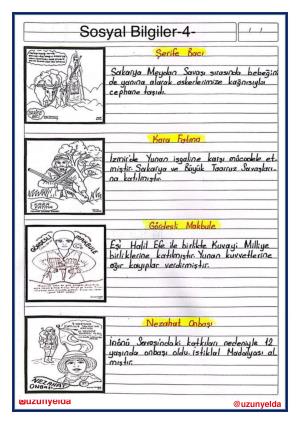 Sosyal Bilgiler-4-
/ /
Şerife Bacı
Sakarya Meydan Savaşı sırasında bebeğini
de yanına alarak askerlerimize kağnısıyla
cephane taşıdı.
Kara Fatma
İzmir'de Yunan işgaline karşı mücadele et-
miştir. Sakarya ve Büyük Taarruz Savaşları-
na katılmıştır.
KARA FATMA
Gördesli Makbule
GÖRDESLİ MAKBULE
Eşi Halil Efe ile birlikte Kuvayi Milliye
birliklerine katılmıştır. Yunan kuvvetlerine
ağır kayıplar verdirmiştir.
Nezahat Onbaşı
İnönü Savaşındaki katkıları nedeniyle 12
yaşında onbaşı oldu. İstiklal Madalyası al-
mıştır.
NEZAHAT
ONBAŞI
@uzunyelda
@uzunyelda